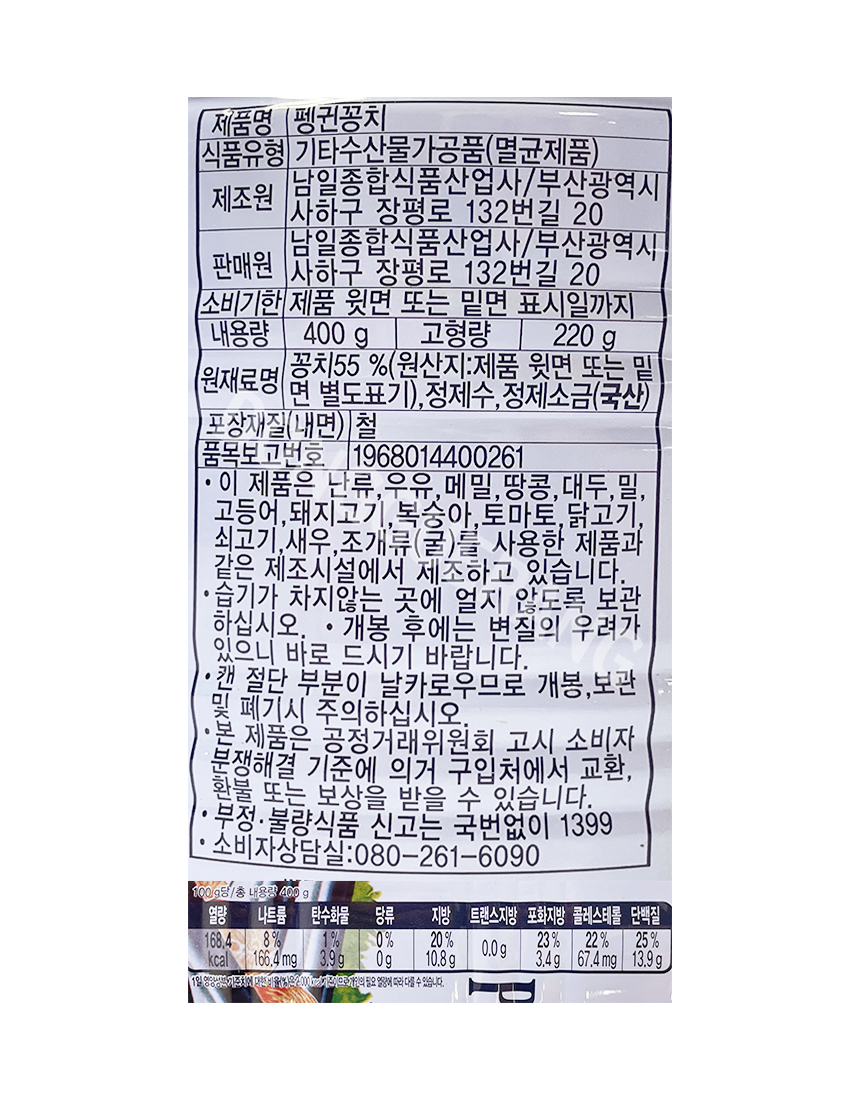 제품명 펭귄꽁치
식품유형 기타수산물가공품(멸균제품)
제조원 남일종합식품산업사/부산광역시
사하구 장평로 132번길 20
판매원 남일종합식품산업사/부산광역시
사하구 장평로 132번길 20
소비기한 제품 윗면 또는 밑면 표시일까지
내용량 400 g 고형량 220 g
원재료명 꽁치55 %(원산지:제품 윗면 또는 밑
면 별도표기),정제수,정제소금(국산)
포장재질(내면) 철
품목보고번호 1968014400261
•이 제품은 난류,우유,메밀,땅콩,대두,밀,
고등어,돼지고기,복숭아,토마토,닭고기,
쇠고기,새우,조개류(굴)를 사용한 제품과
같은 제조시설에서 제조하고 있습니다.
•습기가 차지않는 곳에 얼지 않도록 보관
하십시오. •개봉 후에는 변질의 우려가
있으니 바로 드시기 바랍니다.
•캔 절단 부분이 날카로우므로 개봉,보관
및 폐기시 주의하십시오.
•본 제품은 공정거래위원회 고시 소비자
분쟁해결 기준에 의거 구입처에서 교환,
환불 또는 보상을 받을 수 있습니다.
•부정·불량식품 신고는 국번없이 1399
•소비자상담실:080-261-6090
100 g당/총 내용량 400 g
열량 나트륨 탄수화물 당류 지방 트랜스지방 포화지방 콜레스테롤 단백질
168.4 8 % 1 % 0 % 20 % 0.0 g 23 % 22 % 25 %
kcal 166.4 mg 3.9 g 0 g 10.8 g 3.4 g 67.4 mg 13.9 g
1일 영양성분 기준치에 대한 비율(%)은 2,000 kcal 기준이므로 개인의 필요 열량에 따라 다를 수 있습니다.